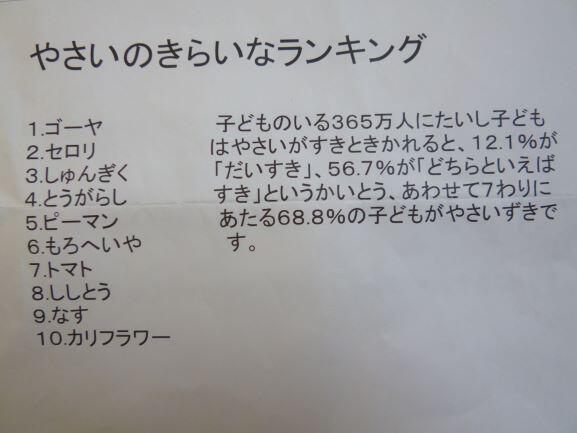 やさいのきらいなランキング
1.ゴーヤ
2.セロリ
3.しゅんぎく
4.とうがらし
5.ピーマン
6.もろへいや
7.トマト
8.ししとう
9.なす
10.カリフラワー
子どものいる365万人にたいし子ども
はやさいがすきときかれると、12.1%が
「だいすき」、56.7%が「どちらといえば
すき」というかいとう、あわせて7わりに
あたる68.8%の子どもがやさいずきで
す。